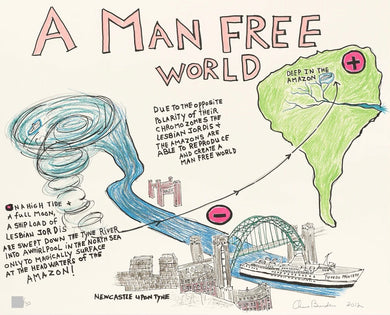 A MAN FREE
WORLD
DEEP IN THE
AMAZON
+
DUE TO THE OPPOSITE
POLARITY OF THEIR
CHROMOZOMES THE
LESBIAN JORDIS +
THE AMAZONS ARE
ABLE TO REPRODUCE
AND CREATE A
MAN FREE WORLD
ON A HIGH TIDE +
A FULL MOON,
A SHIP LOAD OF
LESBIAN JORDIS
ARE SWEPT DOWN THE TYNE RIVER
INTO A WHIRLPOOL IN THE NORTH SEA
ONLY TO MAGICALLY SURFACE
AT THE HEADWATERS OF THE
AMAZON!
-
NEWCASTLE UPON TYNE
2012